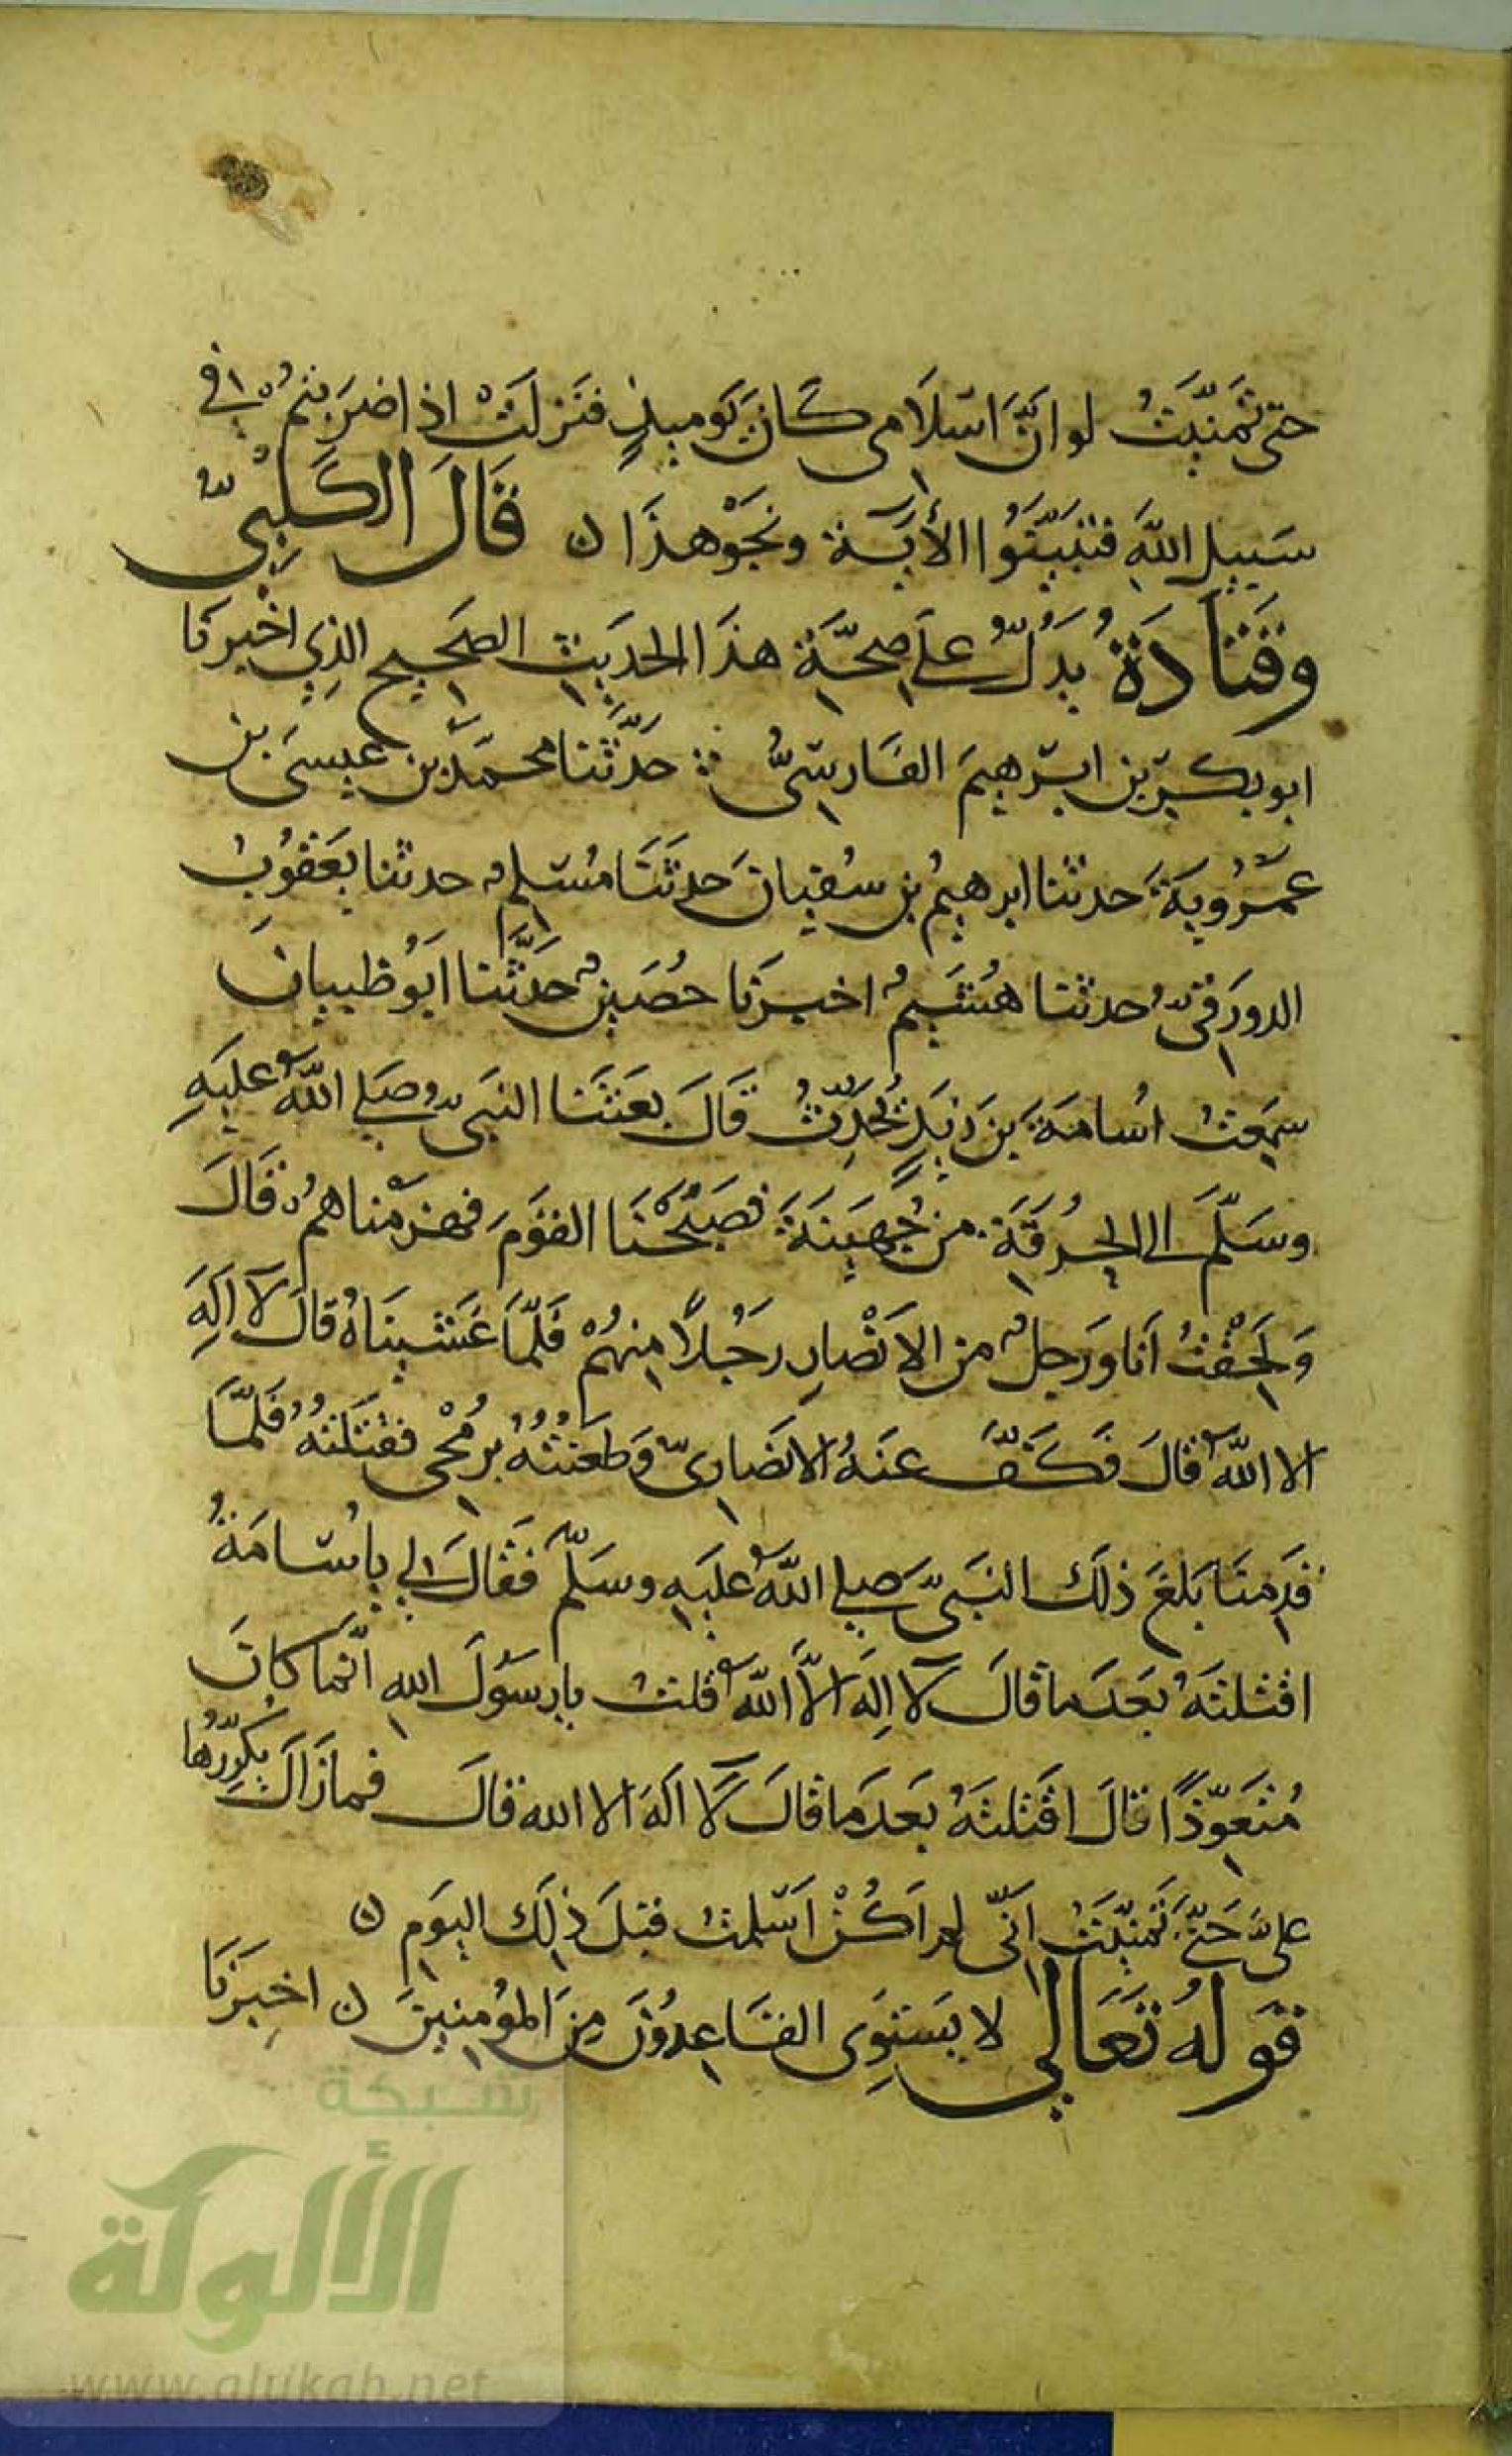 حتى تمنيت لو ان اسلامي كان يوميذ فنزلت اذا ضربتم في
سبيل الله فتبينوا الأية ونحو هذا ن قال الكلبي
وقتادة يدل على صحة هذا الحديث الصحيح الذي اخبرنا
ابو بكر بن ابرهيم الفارسي حدثنا محمد بن عيسى بن
عمروية حدثنا ابرهيم بن سفيان حدثنا مسلم حدثنا يعقوب
الدورقي حدثنا هشيم اخبرنا حصين حدثنا ابو ظبيان
سمعت اسامة بن زيد يحدث قال بعثنا النبي صلى الله عليه
وسلم الى الحرقة من جهينة فصبحنا القوم فهزمناهم قال
ولحقت انا ورجل من الانصار رجلا منهم فلما غشيناه قال لا اله
الا الله قال فكف عنه الانصاري وطعنته برمحي فقتلته فلما
قدمنا بلغ ذلك النبي صلى الله عليه وسلم فقال لي يا اسامة
اقتلته بعد ما قال لا اله الا الله قلت يا رسول الله انما كان
متعوذا قال اقتلته بعد ما قال لا اله الا الله قال فما زال يكررها
علي حتى تمنيت اني لم اكن اسلمت قبل ذلك اليوم ن
قوله تعالى لا يستوي القاعدون من المؤمنين ن اخبرنا
شبكة
الألوكة
www.alukah.net